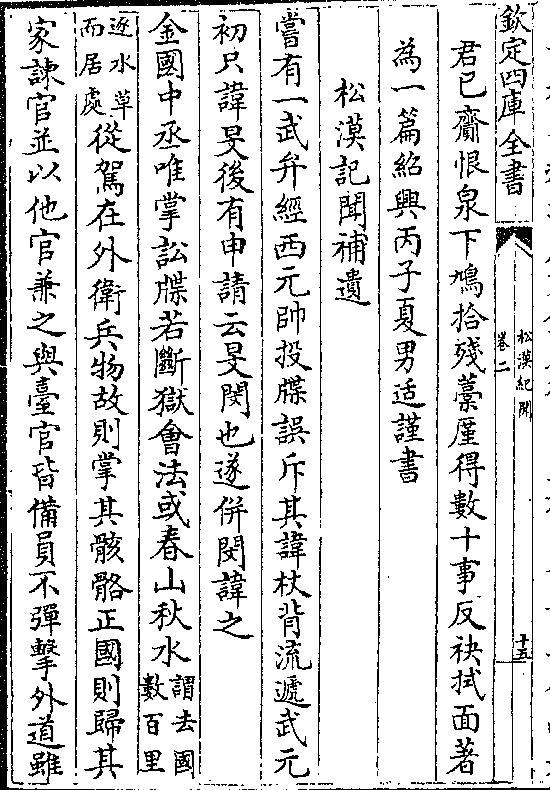 欽定四庫全書
松漠紀聞
卷二
十五
君已齎恨泉下鳩拾殘藁厪得數十事反袂拭面著
為一篇紹興丙子夏男适謹書
松漠記聞補遺
嘗有一武弁經西元帥投牒誤斥其諱杖背流遞武元
初只諱旻後有申請云旻閔也遂併閔諱之
金國中丞唯掌訟牒若斷獄會法或春山秋水謂去國數百里
逐水草而居處從駕在外衛兵物故則掌其骸骼正國則歸其
家諫官並以他官兼之與臺官皆備員不彈擊外道雖